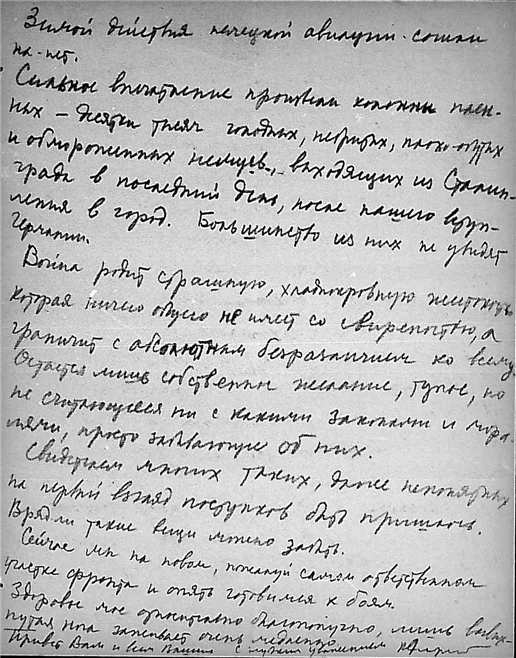 Зимой действия немецкой авиации - сошли
на-нет.
Сильное впечатление произвели колонны плен-
ных – десятки тысяч голодных, небритых, плохо-одетых
и обмороженных немцев, выходящих из Сталин-
града в последний день, после нашего вступ-
ления в город. Большинство из них не увидят
Германии.
Война родит страшную, хладнокровную жестокость
которая ничего общего не имеет со свирепостью, а
граничит с абсолютным безразличием ко всему.
Остается лишь собственное желание, тупое, но
не считающееся ни с какими законами и мора-
лями, просто забывающее об них.
Свидетелем многих таких, даже непонятных
на первый взгляд поступков быть пришлось.
Врядли такие вещи можно забыть.
Сейчас мы на новом, пожалуй самом ответственном
участке фронта и опять готовимся к боям.
Здоровье мое относительно благополучно, лишь
нога заживает очень медленно.
Привет Вам и всем Вашим с уважением